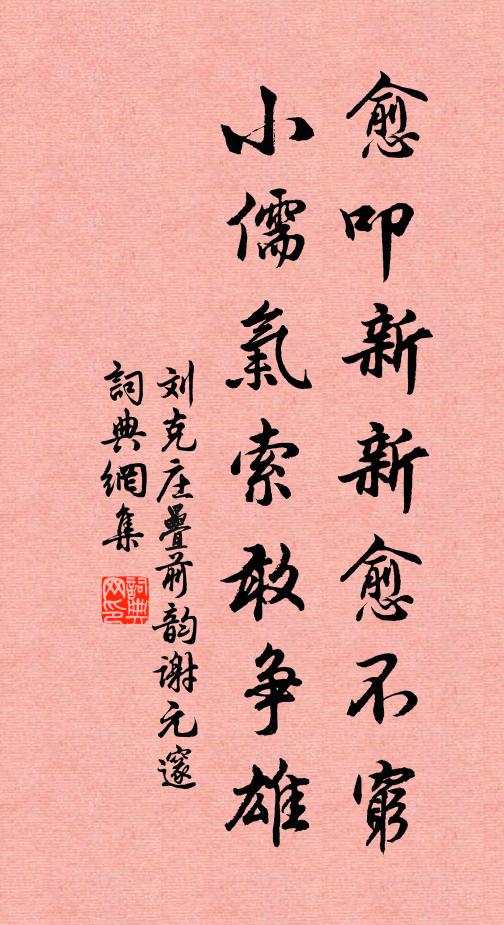 愈叩新新愈不窮
小儒氣索敢争雄
刘克庄疊前韵谢元邃
詞典網集
詞典网印